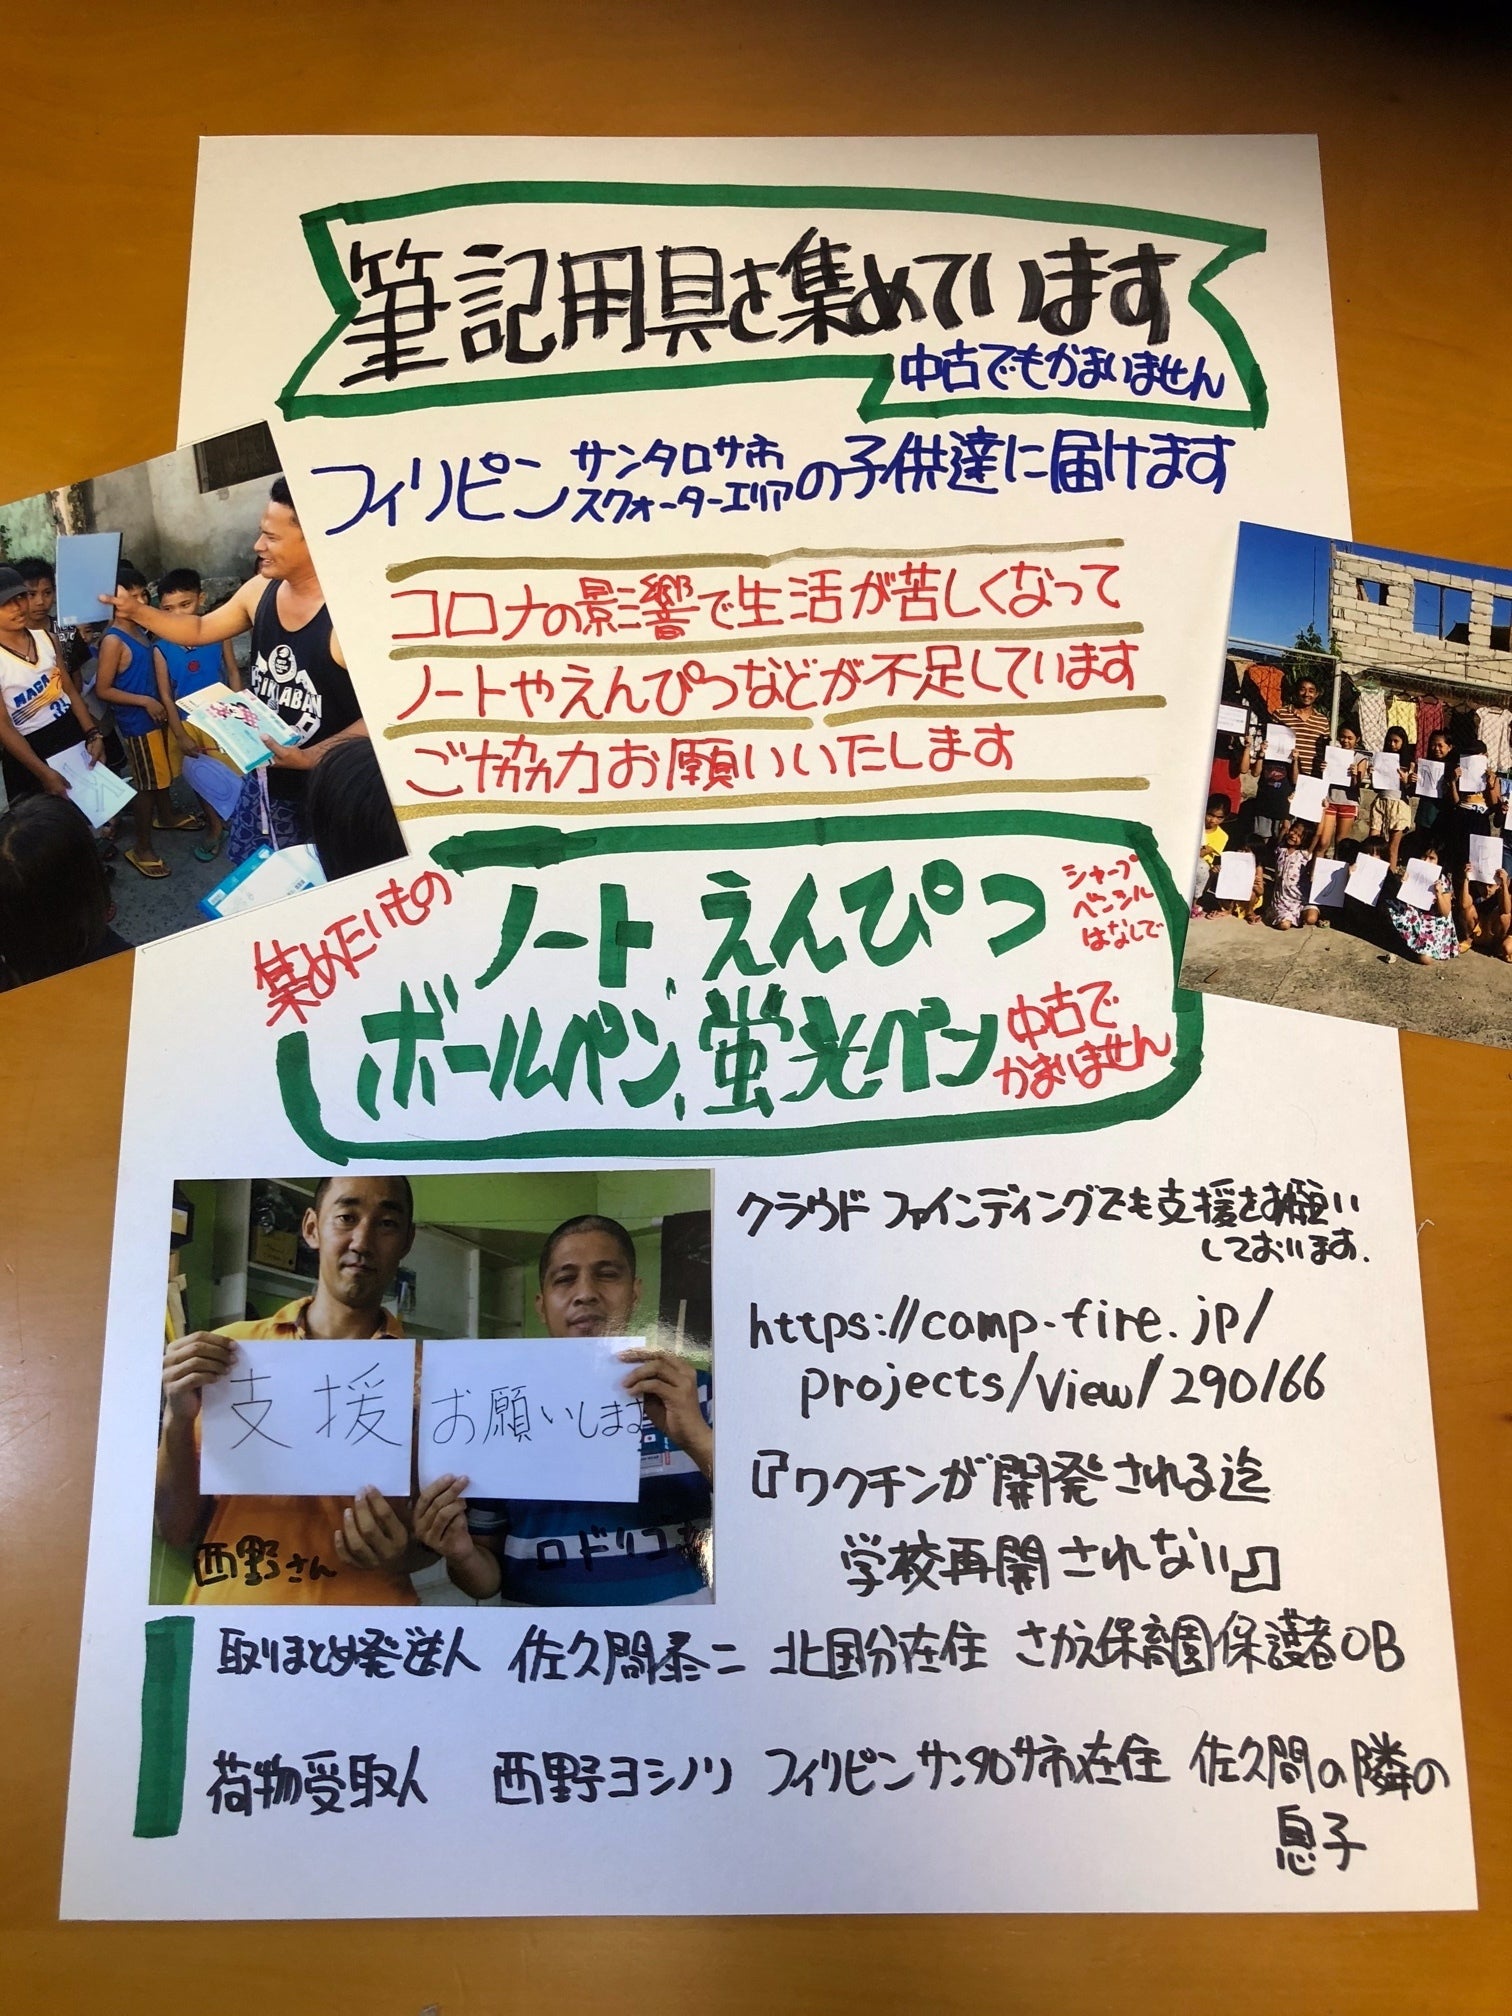 筆記用具を集めています
中古でもかまいません
フィリピン サンタロサ市 スクォーターエリア の子供達に届けます
コロナの影響で生活が苦しくなって
ノートやえんぴつなどが不足しています
ご協力お願いいたします
集めたいもの
ノート, えんぴつ
シャープ
ペンシル
はなしで
ボールペン, 蛍光ペン
中古で
かまいません
クラウドファインディングでも支援をお願い
しております.
https://camp-fire.jp/
projects/view/290166
『ワクチンが開発される迄
学校再開されない』
支援 お願いします
西野さん
ロドリゴ
取りまとめ発送人 佐久間泰二 北国分在住 さかえ保育園保護者OB
荷物受取人 西野ヨシノリ フィリピンサンタロサ市在住 佐久間の隣の
息子